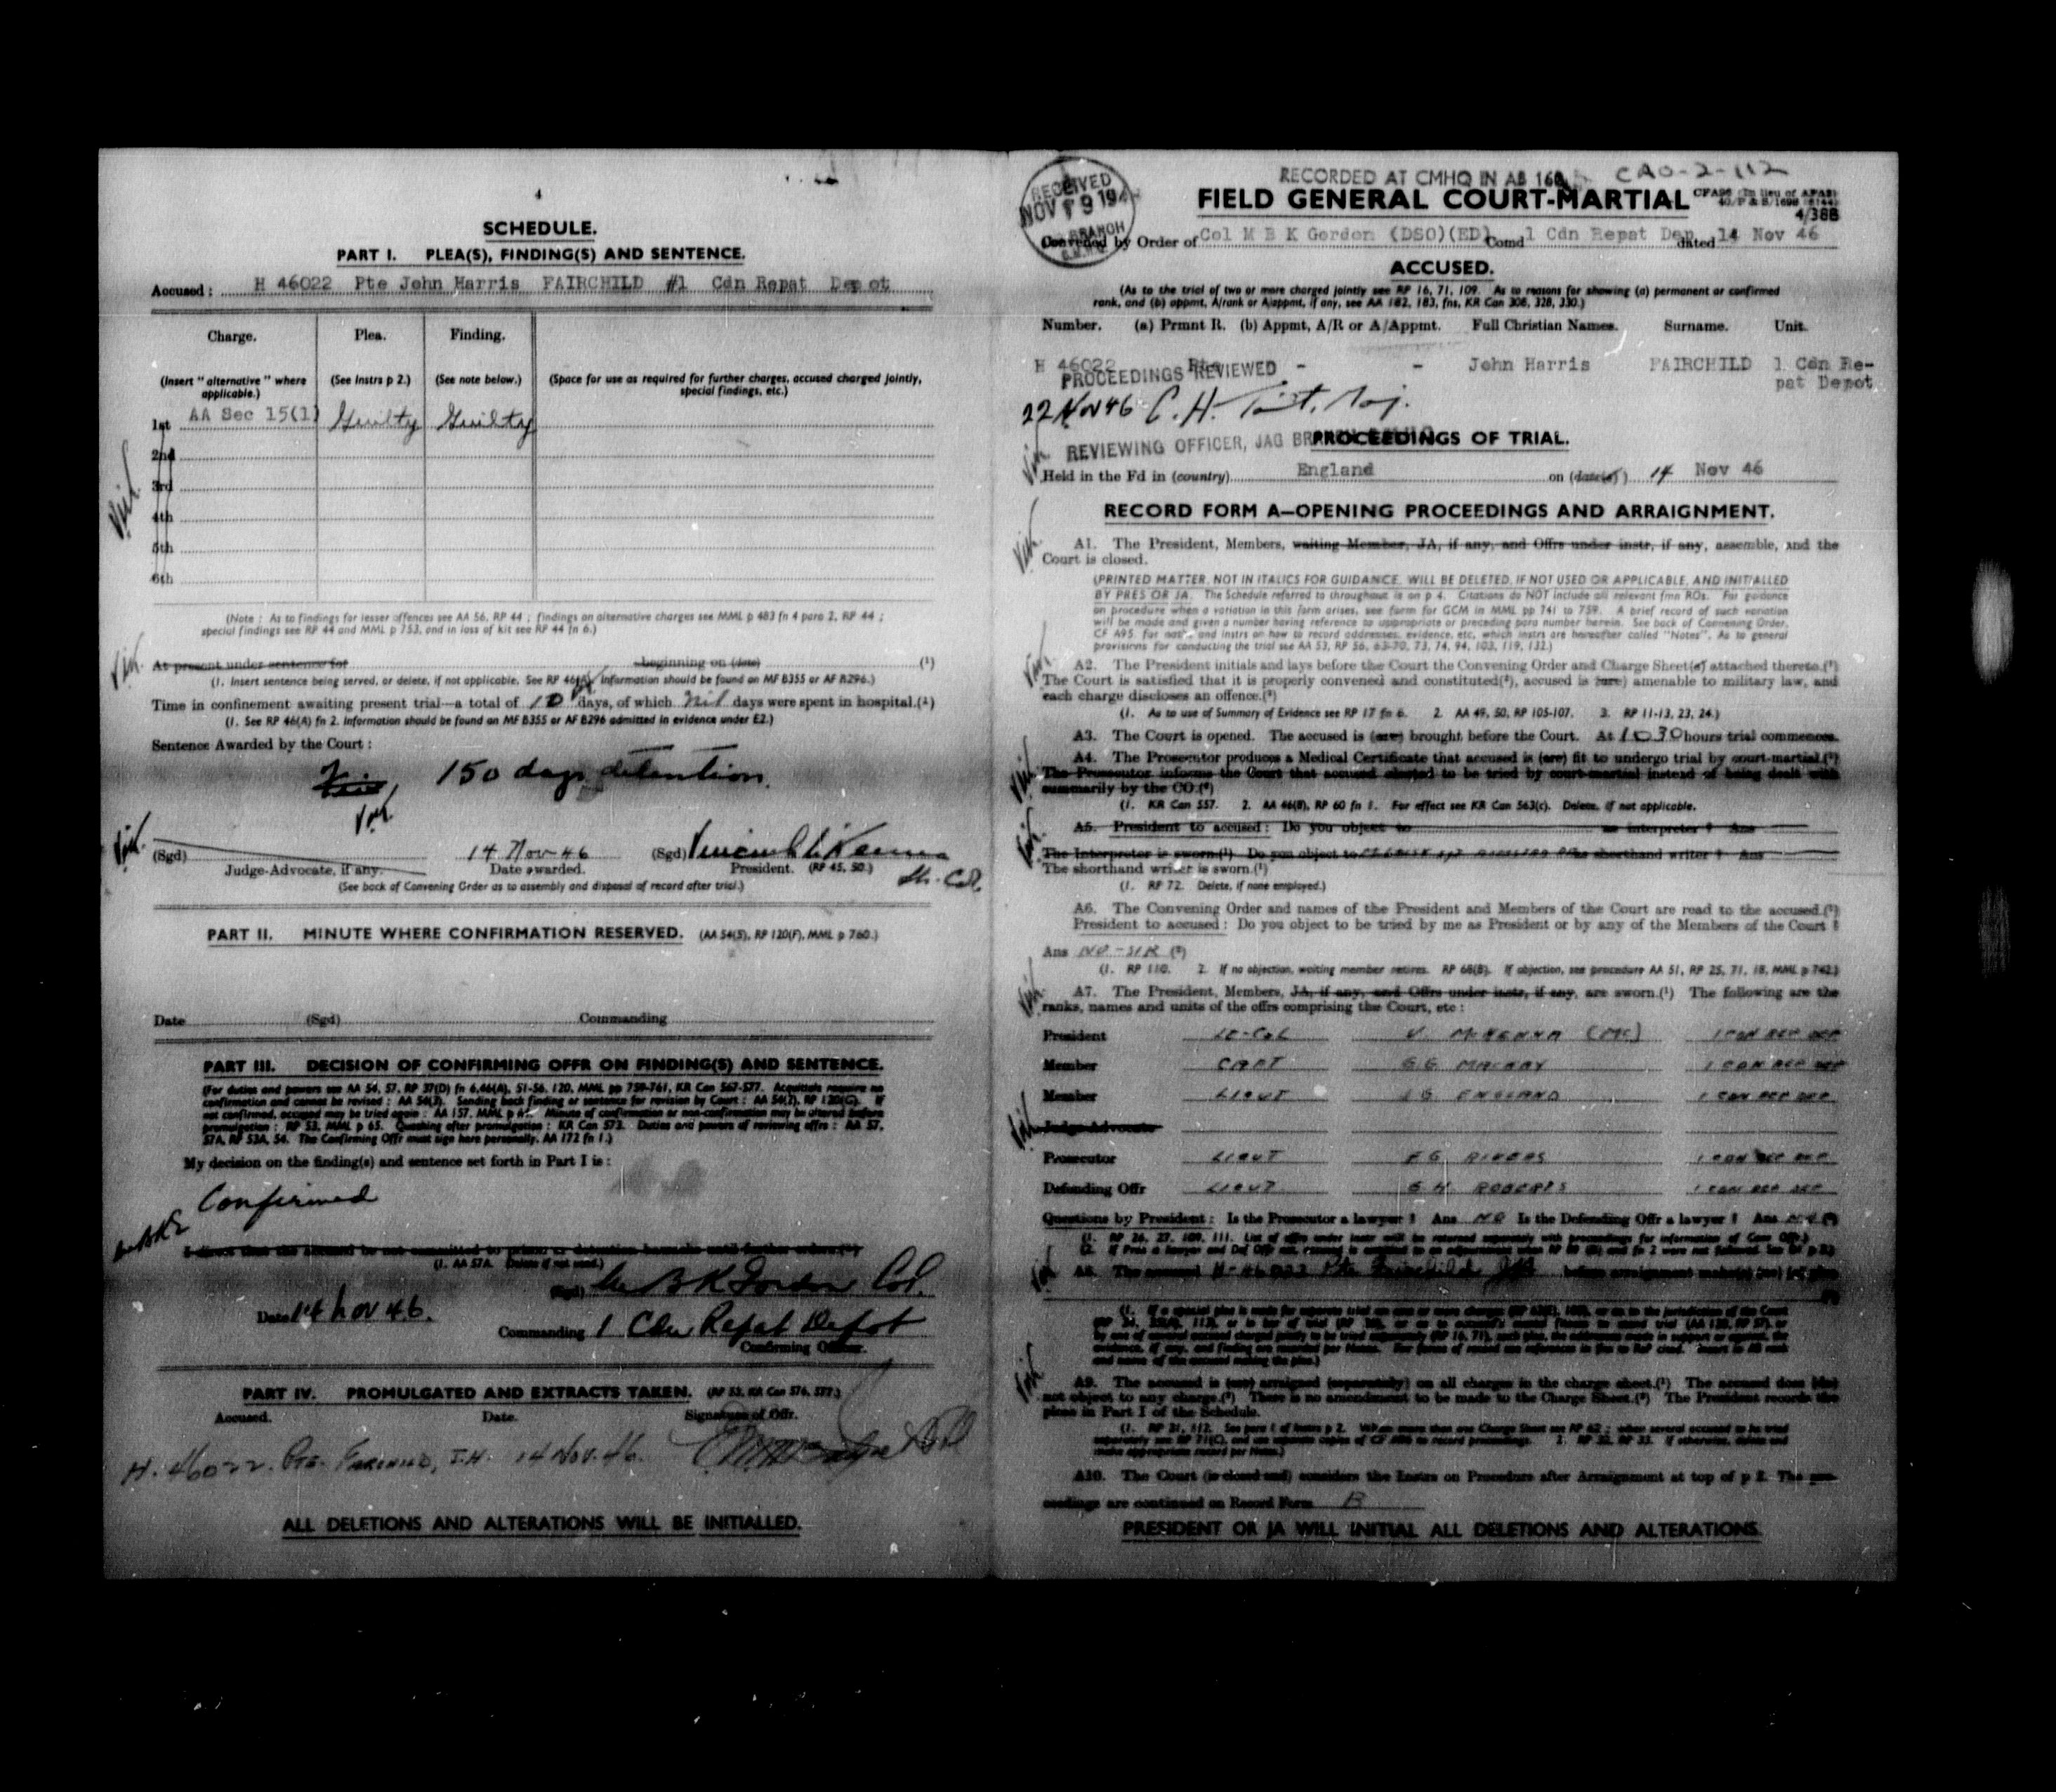 4
SCHEDULE.
PART I. PLEA(S), FINDING(S) AND SENTENCE.
Accused : H 46022 Pte John Harris FAIRCHILD #1 Cdn Repat Depot
Charge. Plea. Finding.
(Insert " alternative " where applicable.) (See Instrs p 2.) (See note below.) (Space for use as required for further charges, accused charged jointly, special findings, etc.)
1st AA Sec 15(1) Guilty Guilty
2nd
3rd
4th
5th
6th
(Note : As to findings for lesser offences see AA 56, RP 44 ; findings on alternative charges see MML p 483 fn 4 para 2, RP 44 ;
special findings see RP 44 and MML p 753, and in loss of kit see RP 44 fn 6.)
At present under sentence for beginning on (date) (¹)
(1. Insert sentence being served, or delete, if not applicable. See RP 46(A). Information should be found on MF B355 or AF B296.)
Time in confinement awaiting present trial—a total of 10 days, of which Nil days were spent in hospital.(¹)
(1. See RP 46(A) fn 2. Information should be found on MF B355 or AF B296 admitted in evidence under E2.)
Sentence Awarded by the Court :
150 days detention.
(Sgd) 14 Nov 46 (Sgd)
Judge-Advocate, if any. Date awarded. President. (RP 45, 50.)
Lt. Col.
(See back of Convening Order as to assembly and disposal of record after trial.)
PART II. MINUTE WHERE CONFIRMATION RESERVED. (AA 54(5), RP 120(F), MML p 760.)
Date (Sgd) Commanding
PART III. DECISION OF CONFIRMING OFFR ON FINDING(S) AND SENTENCE.
(For duties and powers see AA 54, 57, RP 37(D) fn 6,46(A), 51-56, 120, MML pp 759-761, KR Can 567-577. Acquittals require no
confirmation and cannot be revised : AA 54(3). Sending back finding or sentence for revision by Court : AA 54(2), RP 120(C). If
not confirmed, accused may be tried again : AA 157, MML p Minute of confirmation or non-confirmation may be altered before
promulgation : RP 53, MML p 65. Quashing after promulgation : KR Can 573. Duties and powers of reviewing offrs : AA 57,
57A, RP 53A, 54. The Confirming Offr must sign here personally. AA 172 fn 1.)
My decision on the finding(s) and sentence set forth in Part I is :
Confirmed
I direct that the accused be not committed to prison or detention barracks until further orders.(¹)
(1. AA 57A. Delete if not used.)
(Sgd) B K Gordon Col.
Date 14 Nov 46.
Commanding 1 Cdn Repat Depot
Confirming Officer.
PART IV. PROMULGATED AND EXTRACTS TAKEN. (RP 53, KR Can 576, 577.)
Accused. Date. Signature of Offr.
H. 46022. Pte. Fairchild, J.H. 14 Nov. 46.
ALL DELETIONS AND ALTERATIONS WILL BE INITIALLED.
RECEIVED
NOV 19 194
BRANCH
RECORDED AT CMHQ IN AB 160 CAO-2-112
FIELD GENERAL COURT-MARTIAL
4/388
Convened by Order of Col M B K Gordon (DSO)(ED) Comd 1 Cdn Repat Dep dated 14 Nov 46
ACCUSED.
(As to the trial of two or more charged jointly see RP 16, 71, 109. As to reasons for showing (a) permanent or confirmed
rank, and (b) appmt, A/rank or A/appmt, if any, see AA 182, 183, fns, KR Can 308, 328, 330.)
Number. (a) Prmnt R. (b) Appmt, A/R or A/Appmt. Full Christian Names. Surname. Unit.
H 46022 Pte - - John Harris FAIRCHILD 1 Cdn Re-
pat Depot
PROCEEDINGS REVIEWED
22 Nov 46 C. H. Maj.
REVIEWING OFFICER, JAG BRANCH
PROCEEDINGS OF TRIAL.
Held in the Fd in (country) England on (date(s)) 14 Nov 46
RECORD FORM A—OPENING PROCEEDINGS AND ARRAIGNMENT.
A1. The President, Members, waiting Member, JA, if any, and Offrs under instr, if any, assemble, and the
Court is closed.
(PRINTED MATTER, NOT IN ITALICS FOR GUIDANCE, WILL BE DELETED, IF NOT USED OR APPLICABLE, AND INITIALLED
BY PRES OR JA. The Schedule referred to throughout is on p 4. Citations do NOT include all relevant fmn ROs. For guidance
on procedure when a variation in this form arises, see form for GCM in MML pp 741 to 759. A brief record of such variation
will be made and given a number having reference to appropriate or preceding para number herein. See back of Convening Order,
CF A95, for and instrs on how to record addresses, evidence, etc, which instrs are hereafter called "Notes". As to general
provisions for conducting the trial see AA 53, RP 56, 63-70, 73, 74, 94, 103, 119, 132.)
A2. The President initials and lays before the Court the Convening Order and Charge Sheet(s) attached thereto.(¹)
The Court is satisfied that it is properly convened and constituted(²), accused is (are) amenable to military law, and
each charge discloses an offence.(³)
(1. As to use of Summary of Evidence see RP 17 fn 6. 2. AA 49, 50, RP 105-107. 3. RP 11-13, 23, 24.)
A3. The Court is opened. The accused is (are) brought before the Court. At 1030 hours trial commences.
A4. The Prosecutor produces a Medical Certificate that accused is (are) fit to undergo trial by court-martial.(¹)
The Prosecutor informs the Court that accused elected to be tried by court-martial instead of being dealt with
summarily by the CO.(²)
(1. KR Can 557. 2. AA 46(8), RP 60 fn 1. For effect see KR Can 563(c). Delete, if not applicable.
A5. President to accused : Do you object to as interpreter ? Ans
The Interpreter is sworn.(¹) Do you object to as shorthand writer ? Ans
The shorthand writer is sworn.(¹)
(1. RP 72. Delete, if none employed.)
A6. The Convening Order and names of the President and Members of the Court are read to the accused.(¹)
President to accused : Do you object to be tried by me as President or by any of the Members of the Court ?
Ans NO - SIR (²)
(1. RP 110. 2. If no objection, waiting member retires. RP 68(B). If objection, see procedure AA 51, RP 25, 71, 18, MML p 742.)
A7. The President, Members, JA, if any, and Offrs under instr, if any, are sworn.(¹) The following are the
ranks, names and units of the offrs comprising the Court, etc :
President LT-COL V. McKENNA (MC) 1 CDN REP DEP
Member CAPT MACKAY 1 CDN REP DEP
Member LIEUT ENGLAND 1 CDN REP DEP
Judge-Advocate
Prosecutor LIEUT RIVERS 1 CDN REP DEP
Defending Offr LIEUT ROBERTS 1 CDN REP DEP
Questions by President : Is the Prosecutor a lawyer ? Ans NO Is the Defending Offr a lawyer ? Ans NO (²)
A8. The accused H-46022 Pte Fairchild JH before arraignment
A9. The accused is (are) arraigned (separately) on all charges in the charge sheet.(¹) The accused does (do)
not object to any charge.(²) There is no amendment to be made to the Charge Sheet.(³) The President records the
pleas in Part I of the Schedule.
A10. The Court (is closed and) considers the Instrs on Procedure after Arraignment at top of p 2. The pro-
ceedings are continued on Record Form B
PRESIDENT OR JA WILL INITIAL ALL DELETIONS AND ALTERATIONS.